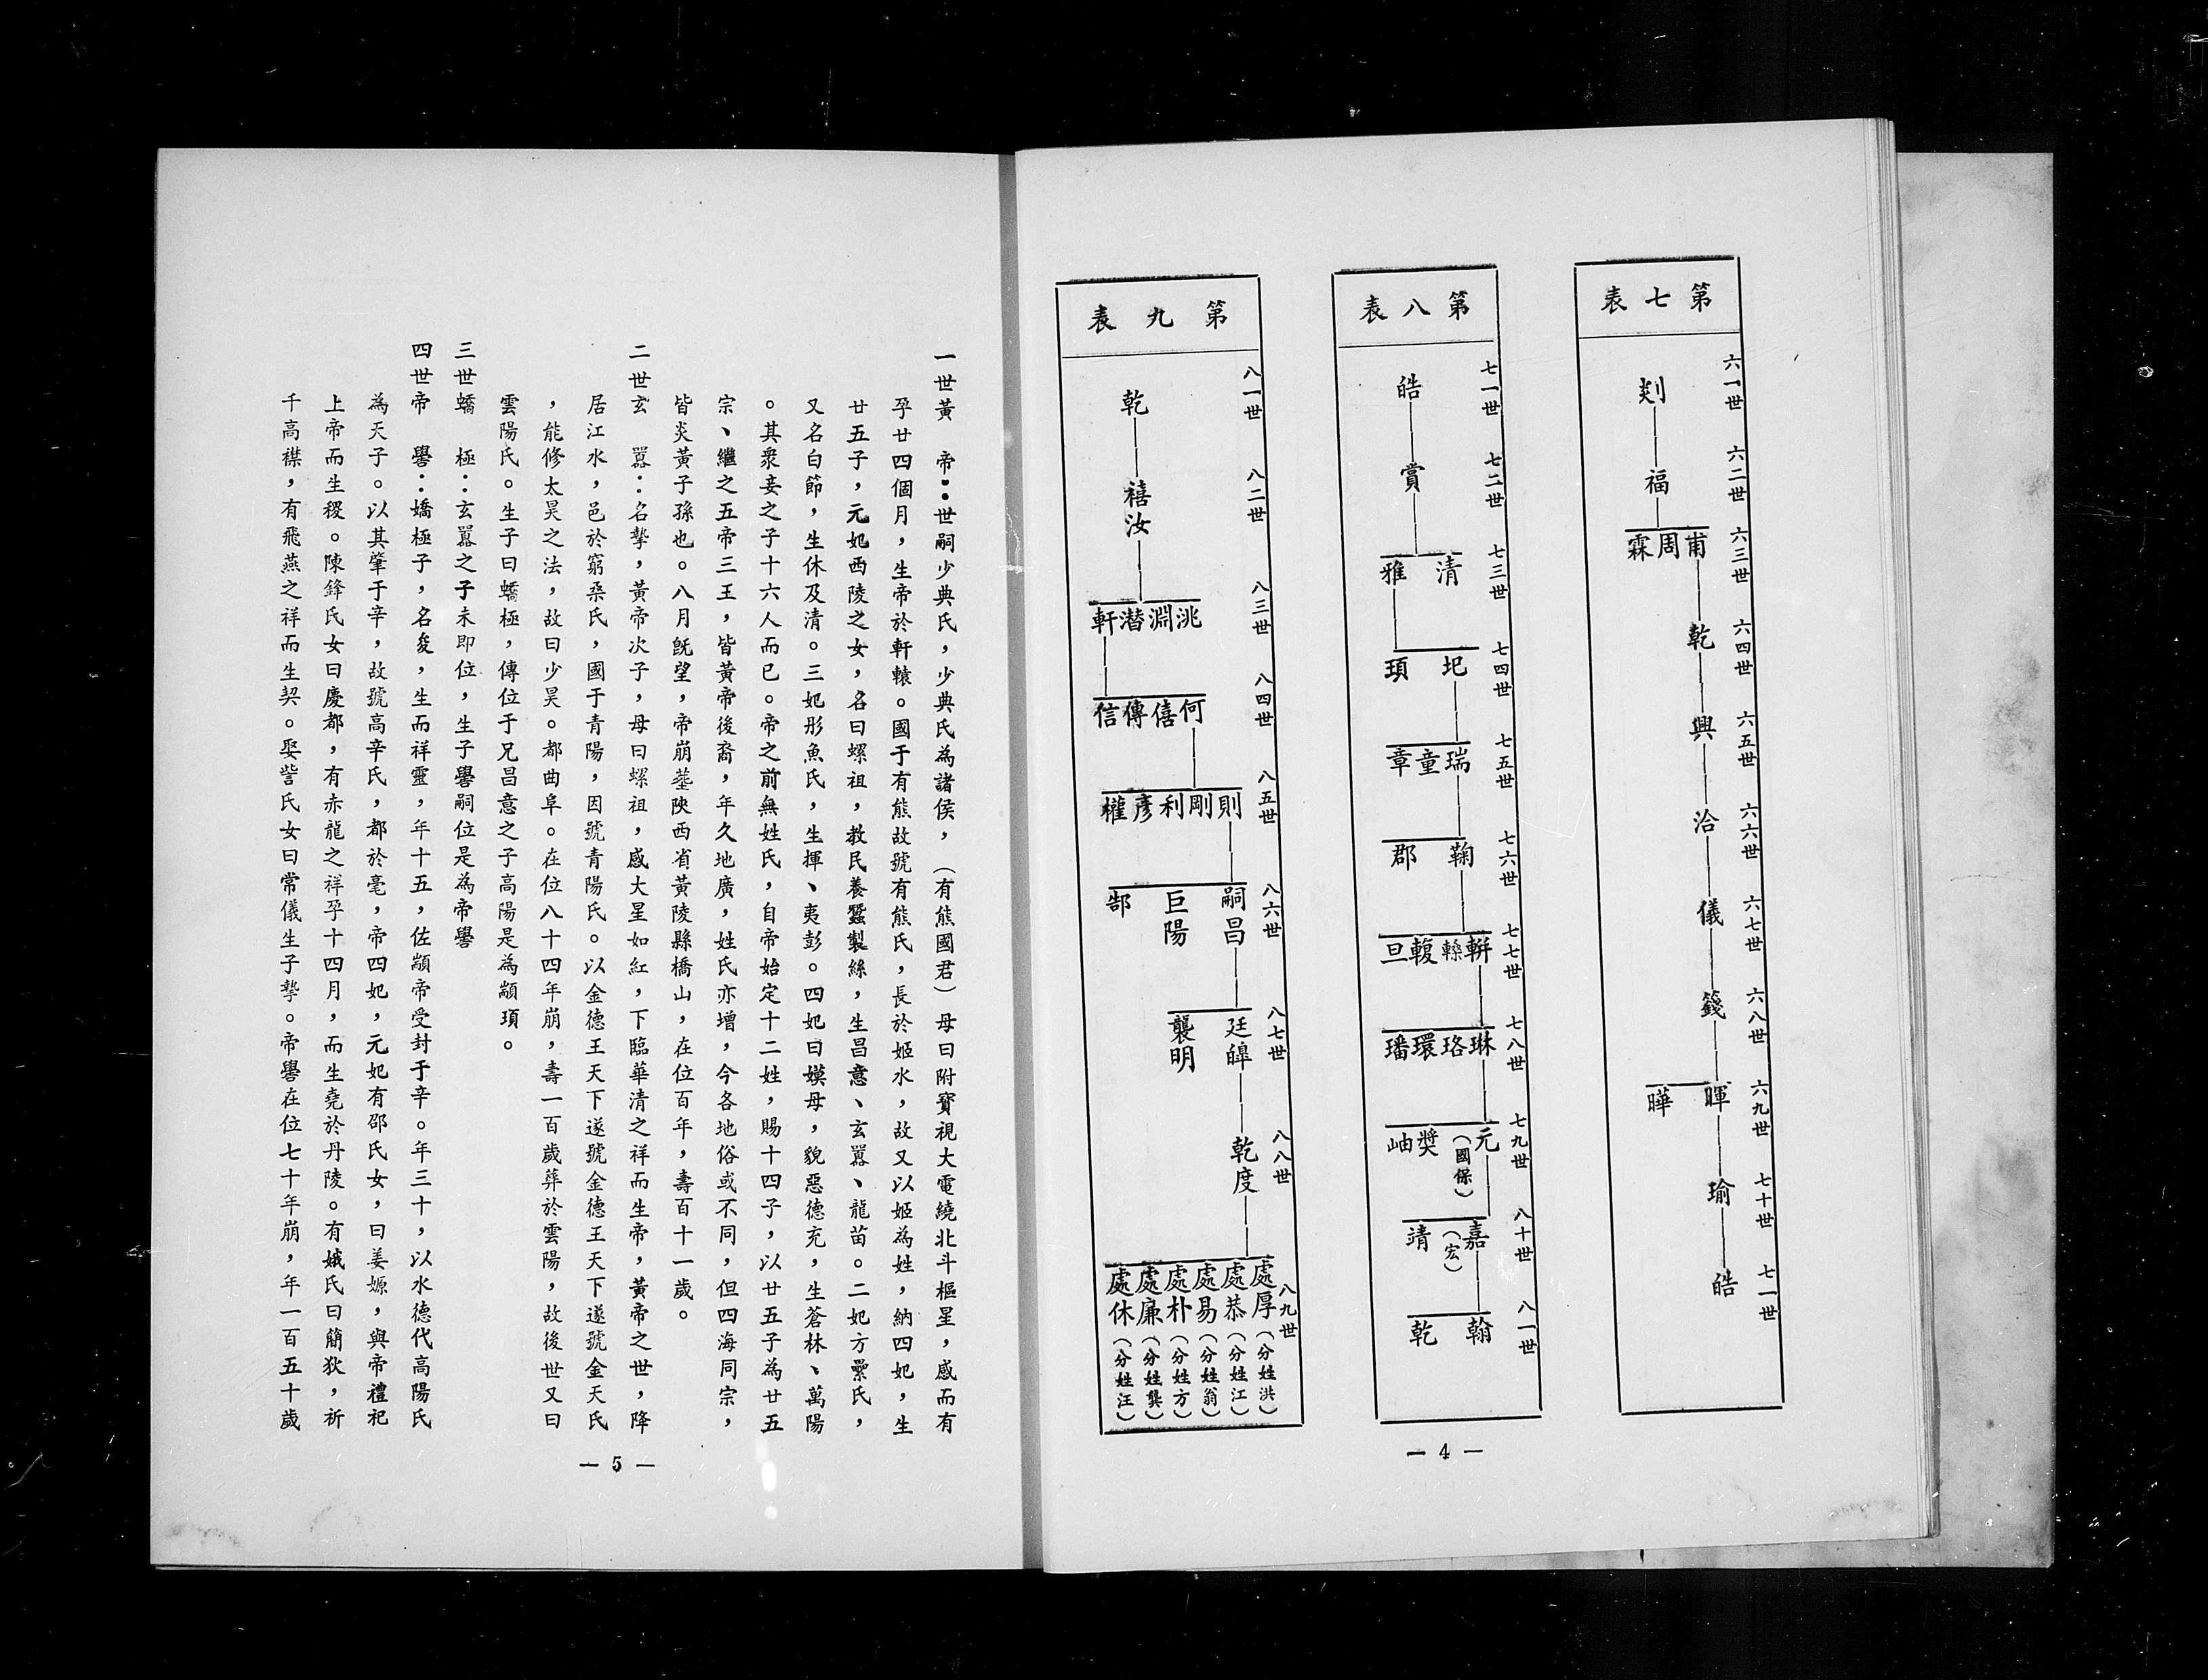 第七表
六一世 剡
六二世 福
六三世 甫周霖
六四世 乾
六五世 興
六六世 洽
六七世 儀
六八世 籛
六九世 暉 曄
七十世 瑜
七一世 皓
第八表
七一世 皓
七二世 賞
七三世 清 雅
七四世 圯 頊
七五世 瑞童章
七六世 鞠 郡
七七世 輧 輹旦
七八世 琳珞環璠
七九世 元(國保) 奬 岫
八十世 嘉(宏) 靖
八一世 翰 乾
第九表
八一世 乾
八二世 禧汝
八三世 洮淵潛軒
八四世 何僖傳信
八五世 則剛利彥權
八六世 嗣昌 巨陽 郜
八七世 廷皞 襲明
八八世 乾度
八九世 處厚(分姓洪) 處恭(分姓江) 處易(分姓翁) 處朴(分姓方) 處廉(分姓龔) 處休(分姓汪)
— 4 —
一世黃 帝：世嗣少典氏，少典氏為諸侯，（有熊國君）母曰附寶視大電繞北斗樞星，感而有
孕廿四個月，生帝於軒轅。國于有熊故號有熊氏，長於姬水，故又以姬為姓，納四妃，生
廿五子，元妃西陵之女，名曰螺祖，教民養蠶製絲，生昌意、玄囂、龍苗。二妃方纍氏，
又名白節，生休及清。三妃彤魚氏，生揮、夷彭。四妃曰嫫母，貌惡德充，生蒼林、萬陽
。其衆妾之子十六人而已。帝之前無姓氏，自帝始定十二姓，賜十四子，以廿五子為廿五
宗、繼之五帝三王，皆黃帝後裔，年久地廣，姓氏亦增，今各地俗或不同，但四海同宗，
皆炎黃子孫也。八月旣望，帝崩塟陝西省黃陵縣橋山，在位百年，壽百十一歲。
二世玄 囂：名摯，黃帝次子，母曰螺祖，感大星如紅，下臨華清之祥而生帝，黃帝之世，降
居江水，邑於窮桑氏，國于青陽，因號青陽氏。以金德王天下遂號金德王天下遂號金天氏
，能修太昊之法，故曰少昊。都曲阜。在位八十四年崩，壽一百歲葬於雲陽，故後世又曰
雲陽氏。生子曰蟜極，傳位于兄昌意之子高陽是為顓頊。
三世蟜 極：玄囂之子未即位，生子嚳嗣位是為帝嚳
四世帝 嚳：嬌極子，名夋，生而祥靈，年十五，佐顓帝受封于辛。年三十，以水德代高陽氏
為天子。以其肇于辛，故號高辛氏，都於亳，帝四妃，元妃有邵氏女，曰姜嫄，與帝禮祀
上帝而生稷。陳鋒氏女曰慶都，有赤龍之祥孕十四月，而生堯於丹陵。有娥氏曰簡狄，祈
千高禖，有飛燕之祥而生契。娶訾氏女曰常儀生子摯。帝嚳在位七十年崩，年一百五十歲
— 5 —